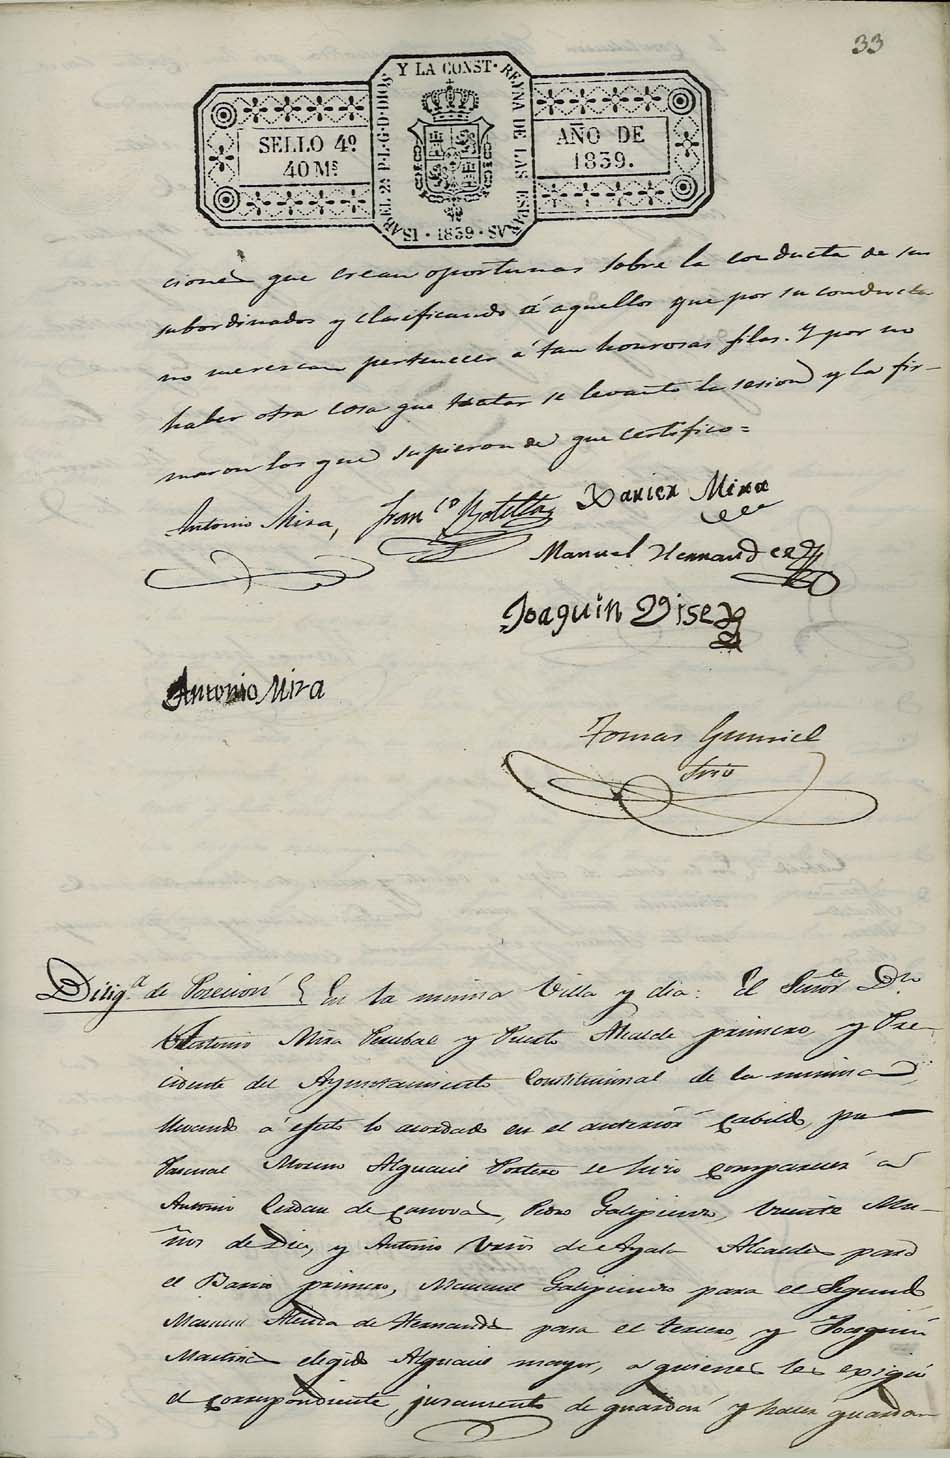 33
ISABEL 2ª P.L.G.D.DIOS Y LA CONST. REYNA DE LAS ESPAÑAS
SELLO 4º
40 Ms
AÑO DE
1839.
1839
ciones que crean oportunas sobre la conducta de sus
subordinados y clasificando á aquellos que por su conducta
no merezcan pertenecer á tan honrosas filas. Y por no
haber otra cosa que tratar se levantó la sesion y la fir-
maron los que supieron de que certifico=
Antonio Mira, Franco Botella Xavier Mira
Manuel Hernandez
Joaquin Diez
Antonio Mira
Tomas Gumiel
Srio
Diliga de Posecion En la misma Villa y dia: El Señor Dn
Antonio Mira Percebal y Puerto Alcalde primero, y Pre-
cidente del Ayuntamiento Constitucional de la misma,
llevando á efeto lo acordado en el anterior Cabildo, por
Pascual Moreno Alguacil Portero se hizo comparecer á
Antonio Cerdan de Canovas, Pedro Galipienzo, Vicente Mu-
ños de Diez, y Antonio de Ayala Alcaldes para
el Barrio primero, Manuel Galipienzo para el Segundo
Manuel de Hernandez para el tercero, y Joaquin
Martinez elegido Alguacil mayor, a quienes les exigió
el correspondiente, juramento de guardar y hacer guardar